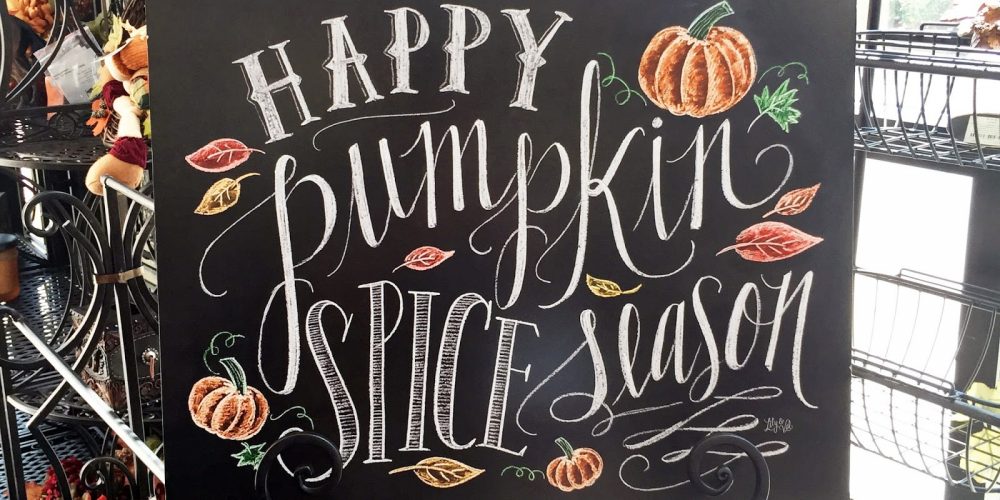 HAPPY
pumpkin
SPICE season
Lily & Val